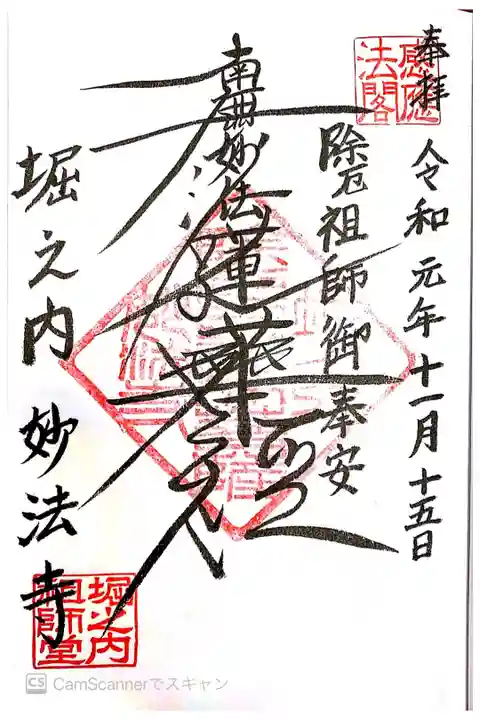 奉拝
令和元年十一月十五日
感應
法閣
除厄祖師御奉安
南無妙法蓮華経
堀之内 妙法寺
堀之内
祖師堂
CS CamScannerでスキャン